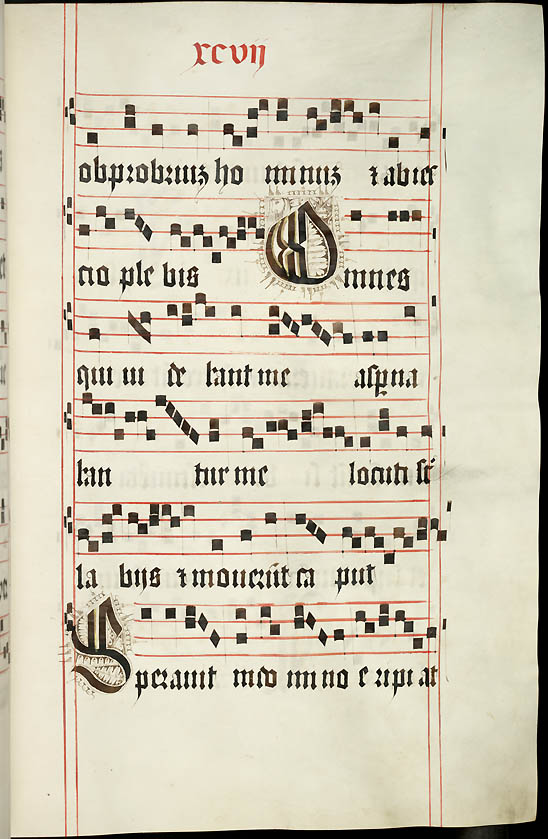 xcvij
obprobriuz ho minuz ⁊ abiec
cio ple bis Omnes
qui ui de bant me aspna
ban tur me locuti st̄
la bijs ⁊ mouerūt ca put
Sperauit in do mi no e ripi at